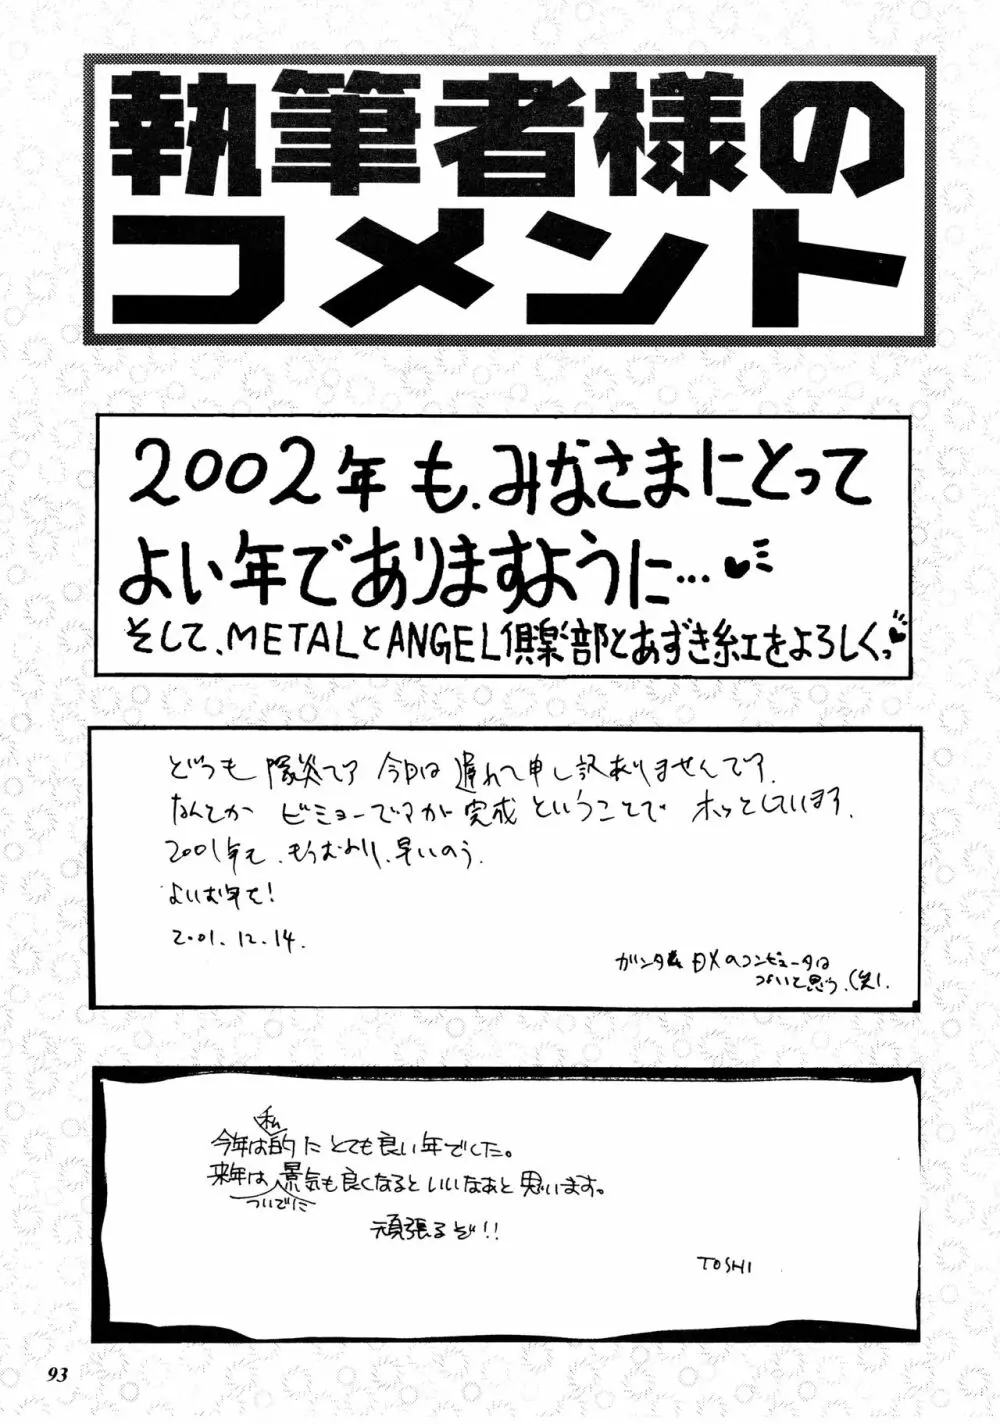 執筆者様の
コメント
2002年も、みなさまにとって
よい年でありますように…
そして、METALとANGEL倶楽部とあずき紅をよろしくっ
どうも 隊炎です 今回は遅れて申し訳ありませんです.
なんとか ビミョーですが完成ということで ホッとしています.
2001年も、もうおわり、早いのう.
よいお年を!
2001.12.14.
DXのコンピュータは
つよいと思う.(笑).
私
今年は的にとても良い年でした。
来年は景気も良くなるといいなぁと思います。
ついでに
頑張るぞ!!
TOSHI
93